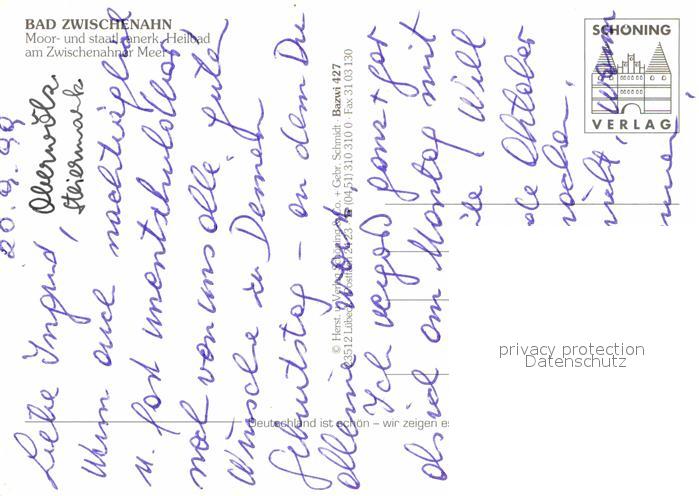 BAD ZWISCHENAHN
Moor- und staatl. anerk. Heilbad
am Zwischenahner Meer
SCHÖNING
VERLAG
© Herst. u. Verlag Schöning & Co. + Gebr. Schmidt · Bazwi 427
23512 Lübeck · Postfach 24 23 · ☎ (04 51) 310 310 0 · Fax 31 03 130
Deutschland ist schön – wir zeigen es
privacy protection
Datenschutz
20.9.99
Oberwölz
Steiermark
Liebe Ingrid,
Wenn auch nachträglich
u. fast unentschuldbar
noch von uns alle guten
Wünsche zu Deinem
Geburtstag – an dem Du
alleine
Ich vergaß ganz + gar
als ich am Montag mit
Will
Oktober
nicht, wann